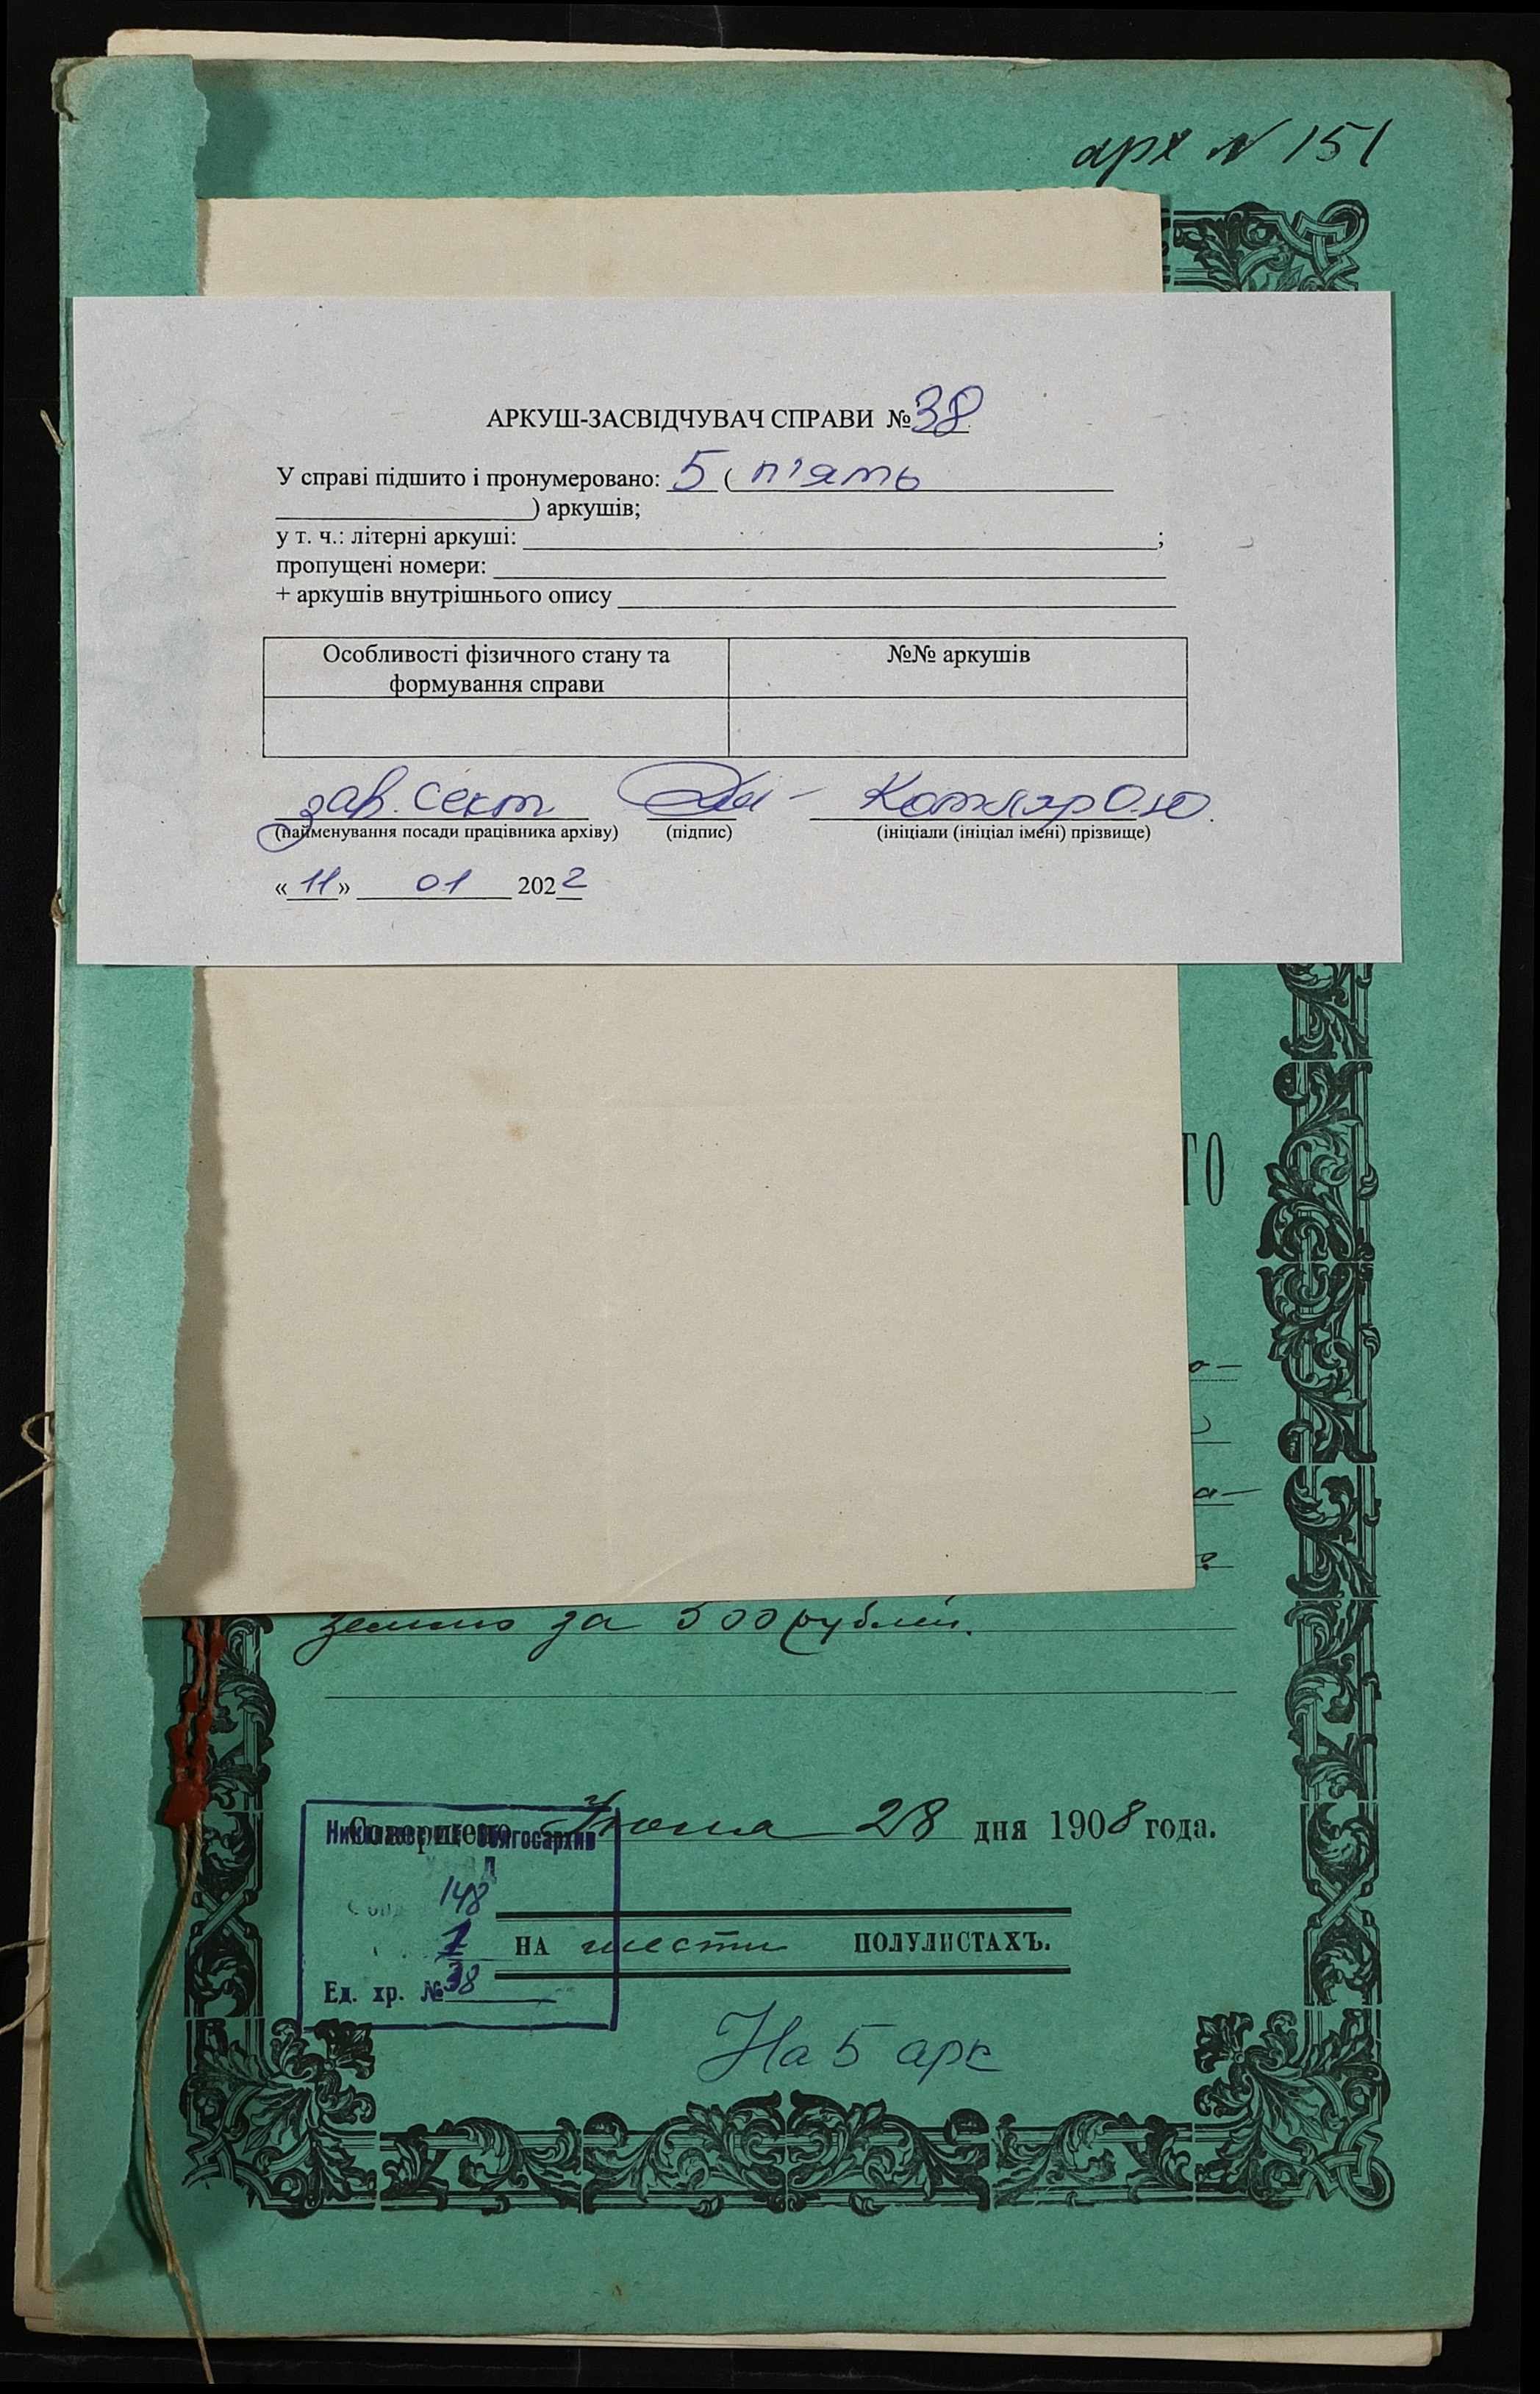 арх № 151
АРКУШ-ЗАСВІДЧУВАЧ СПРАВИ № 38
У справі підшито і пронумеровано: 5 ( п'ять
) аркушів;
у т. ч.: літерні аркуші: ;
пропущені номери:
+ аркушів внутрішнього опису
Особливості фізичного стану та формування справи
№№ аркушів
зав. сект. Котляр О.Ю.
(найменування посади працівника архіву) (підпис) (ініціали (ініціал імені) прізвище)
« 11 » 01 2022
ГО
о-
а-
землю за 500 рублей.
Совершено Июня 28 дня 1908 года.
Николаевский облгосархив
148
1
НА шести ПОЛУЛИСТАХЪ.
Ед. хр. № 38
На 5 арк